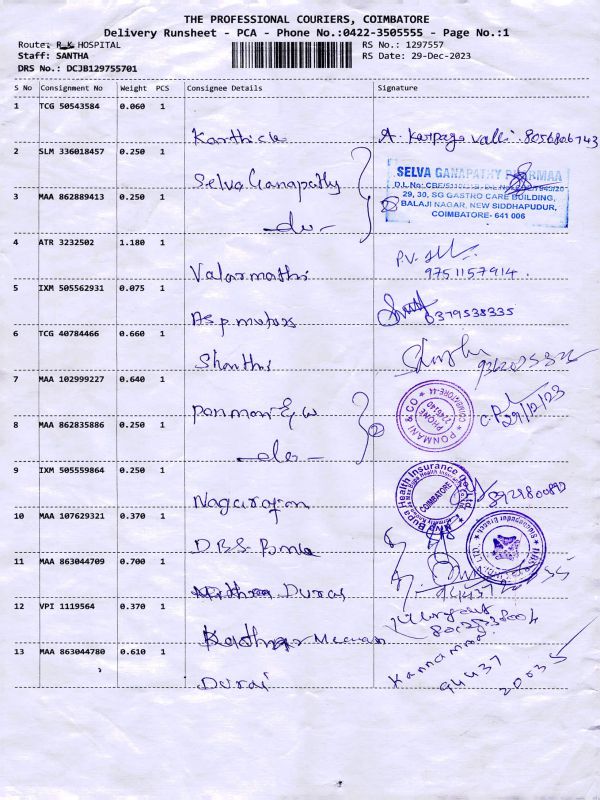 THE PROFESSIONAL COURIERS, COIMBATORE
Delivery Runsheet - PCA - Phone No.:0422-3505555 - Page No.:1
Route: R K HOSPITAL
Staff: SANTHA
DRS No.: DCJB129755701
RS No.: 1297557
RS Date: 29-Dec-2023
S No Consignment No Weight PCS Consignee Details Signature
1 TCG 50543584 0.060 1
Karthick A. Karpaga Valli. 8056806743
2 SLM 336018457 0.250 1
Selva Ganapathy
SELVA GANAPATHY PHARMAA
29, 30, SG GASTRO CARE BUILDING,
BALAJI NAGAR, NEW SIDDHAPUDUR,
COIMBATORE- 641 006
3 MAA 862889413 0.250 1
-do-
4 ATR 3232502 1.180 1
Valarmathi P.V.
9751157914.
5 IXM 505562931 0.075 1
Asp motors 6379538335
6 TCG 40784466 0.660 1
Shanthi
7 MAA 102999227 0.640 1
Ponmani & Co
PONMANI & CO
PHONE
COIMBATORE-44
29/12/23
8 MAA 862835886 0.250 1
-do-
2
9 IXM 505559864 0.250 1
Nagarajan
Bupa Health Insurance Co. Ltd.
COIMBATORE
10 MAA 107629321 0.370 1
D.B.S. Bank
11 MAA 863044709 0.700 1
Durai
12 VPI 1119564 0.370 1
13 MAA 863044780 0.610 1
Durai
Kannammal
94437
20035